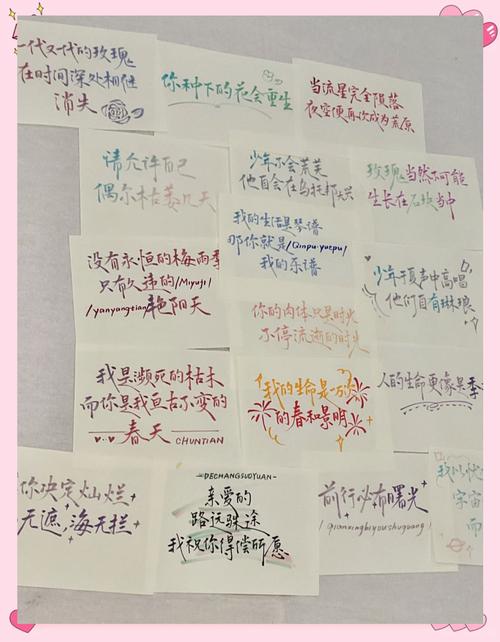 一代又一代的玫瑰
在时间深处相继
消失
你种下的花会重生
当流星完全陨落
夜空便再次成为荒原
请允许自己
偶尔枯萎几天
少年不会荒芜
他自会在乌托邦
玫瑰当然不可能
生长在石玻当中
我的生活是琴谱
那你就是/Qinpu·yuepu/
我的乐谱
没有永恒的梅雨季
只有久违的/Miyuji/
/yanyangtian艳阳天
少年于夏声中高唱
他们自有琳琅
你的肉体只是时光
不停流逝的时光
我是濒死的枯木
而你是我亘古不变的
春天 CHUNTIAN
我的生命是一万次
的春和景明
人的生命更像是季
你决定灿烂
无遮,海无拦
-DECHANGSUOYUAN-
亲爱的
路远殊途
我祝你得偿所愿
前行必有曙光
/qianxingbiyoushuguang/
宇宙
而